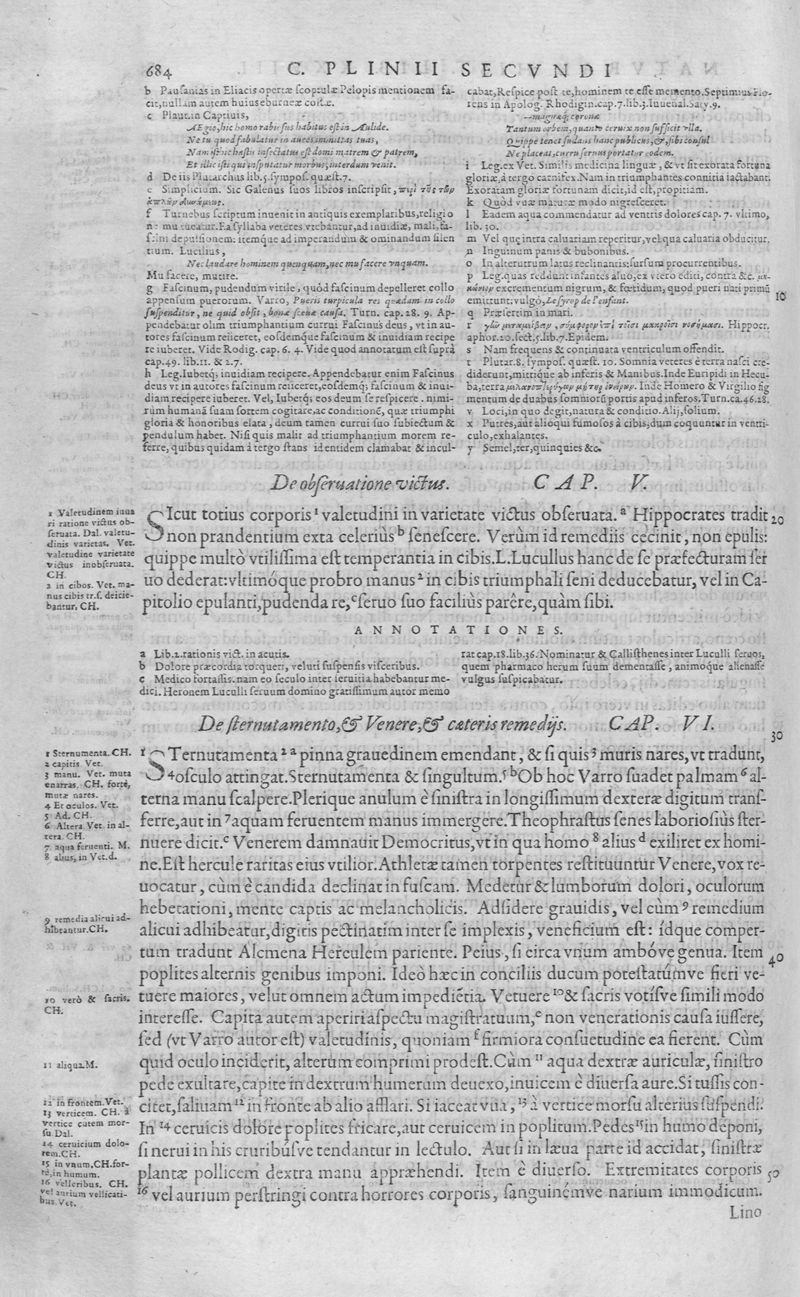 684
C. PLINII SECVNDI
b Pausanias in Eliacis operæ scoptulæ Pelopis mentionem fa-
cit, nullam autem huius eburneæ costæ.
c Plaut. in Captiuis,
Ne tu quod fabulatur in aures immittas tuas,
Et illic isti qui insputatur morbus, interdum venit.
d De iis Plutarchus lib. 5. sympos. quæst. 7.
e Simplicium. Sic Galenus suos libros inscripsit,
f Turnebus scriptum inuenit in antiquis exemplaribus, religio
tium. Lucilius,
Mu facere, mutire.
g Fascinum, pudendum virile, quòd fascinum depelleret collo
appensum puerorum. Varro, Pueris turpicula res quædam in collo
suspenditur, ne quid obsit, bonæ scæuæ causa. Turn. cap. 28. 9. Ap-
pendebatur olim triumphantium currui Fascinus deus, vt in au-
tores fascinum reiiceret, eosdemque fascinum & inuidiam recipe
re iuberet. Vide Rodig. cap. 6. 4. Vide quod annotatum est suprà
cap. 49. lib. 11. & 2.7.
h Leg. Iubetq; inuidiam recipere. Appendebatur enim Fascinus
deus vt in autores fascinum reiiceret, eosdemq; fascinum & inui-
diam recipere iuberet. Vel, Iubetq; eos deum se respicere. nimi-
rùm humanã suam sortem cogitare, ac conditionẽ, quæ triumphi
gloria & honoribus elata, deum tamen currui suo subiectum &
pendulum habet. Nisi quis malit ad triumphantium morem re-
ferre, quibus quidam à tergo stans identidem clamabat & incul-
cabat, Respice post te, hominem te esse memento. Septimius Flo-
rens in Apolog. Rhodigin. cap. 7. lib. 3. Iuuenal. Saty. 9.
--magnæq; coronæ
Tantum orbem, quanto ceruix non sufficit vlla.
Quippe tenet sudans hanc publicus, & sibi consul
Ne placeat, curru seruus portatur eodem.
i Leg. ex Vet. Similis medicina linguæ, & vt sit exorata fortuna
gloriæ, à tergo carnifex. Nam in triumphantes connitia iactabant.
Exoratam gloriæ fortunam dicit, id est, propitiam.
k Quòd vuæ maturæ modo nigresceret.
l Eadem aqua commendatur ad ventris dolores cap. 7. vltimo,
lib. 30.
m Vel quę intra caluariam reperitur, vel qua caluaria obducitur.
n Inguinum panis & bubonibus.
o In alterutrum latus reclinantis: sursum procurrentibus.
p Leg. quas reddunt infantes aluo, ex vtero editi, contra &c.
excrementum nigrum, & fœtidum, quod pueri nati primũ
emittunt: vulgò, Le syrop de l'enfant.
10
q Præsertim in mari.
Hippocr.
aphor. 20. sect. 5. lib. 7. Epidem.
s Nam frequens & continuata ventriculum offendit.
t Plutar. 8. sympos. quæst. 10. Somnia veteres è terra nasci cre-
diderunt, mittique ab inferis & Manibus. Inde Euripidi in Hecu-
ba, terra Inde Homero & Virgilio fig
mentum de duabus somniorũ portis apud inferos. Turn. ca. 46. 28.
v Loci, in quo degit, natura & conditio. Alij, solium.
x Putres, aut alioqui fumosos à cibis, dum coquuntur in ventri-
culo, exhalantes.
y Semel, ter, quinquies &c.
De obseruatione victus. CAP. V.
1 Valetudinem iuua
ri ratione victus ob-
seruata. Dal. valetu-
dinis varietas. Vet.
valetudine varietate
victus inobseruata.
CH.
2 in cibos. Vet. ma-
nus cibis tr. s. deicie-
bantur. CH.
SIcut totius corporis¹ valetudini in varietate victus obseruata. ᵃ Hippocrates tradit 20
non prandentium exta celeriùs ᵇ senescere. Verùm id remediis cecinit, non epulis:
quippe multò vtilissima est temperantia in cibis. L. Lucullus hanc de se præfecturam ser
uo dederat: vltimóque probro manus² in cibis triumphali seni deducebatur, vel in Ca-
pitolio epulanti, pudenda re, ᶜ seruo suo faciliùs parêre, quàm sibi.
ANNOTATIONES.
a Lib. 2. rationis vict. in acutis.
b Dolore præcordia torqueri, veluti suspensis visceribus.
c Medico fortassis. nam eo seculo inter seruitia habebantur me-
dici. Heronem Luculli seruum domino gratissimum autor memo
rat cap. 18. lib. 36. Nominatur & Callisthenes inter Luculli seruos,
quem pharmaco herum suum dementasse, animoque alienasse
vulgus suspicabatur.
De sternutamento, & Venere, & cæteris remedijs. CAP. VI.
30
1 Sternumenta. CH.
2 capitis Vet.
3 manu. Vet. muta
enarras. CH. fortè,
mutæ nares.
4 Et oculos. Vet.
5 Ad. CH.
6 Altera Vet. in al-
tera. CH.
7. aqua feruenti. M.
8 alius, in Vet. d.
9 remedia alicui ad-
hibeantur. CH.
10 verò & sacris.
CH.
11 aliqua. M.
12 in frontem. Vet.
13 verticem. CH. à
vertice catem mor-
su Dal.
14 ceruicium dolo-
rem. CH.
15 in vnum. CH. for-
tè, in humum.
16 velleribus. CH.
vel aurium vellicati-
bus Vet.
¹ STernutamenta ² ᵃ pinna grauedinem emendant, & si quis ³ muris nares, vt tradunt,
⁴ osculo attingat. Sternutamenta & singultum. ⁵ ᵇ Ob hoc Varro suadet palmam ⁶ al-
terna manu scalpere. Plerique anulum è sinistra in longissimum dexteræ digitum trans-
ferre, aut in ⁷ aquam feruentem manus immergere. Theophrastus senes laboriosiùs ster-
nuere dicit. ᶜ Venerem damnauit Democritus, vt in qua homo ⁸ alius ᵈ exiliret ex homi-
ne. Est hercule raritas eius vtilior. Athletæ tamen torpentes restituuntur Venere, vox re-
uocatur, cùm è candida declinat in fuscam. Medetur & lumborum dolori, oculorum
hebetationi, mente captis ac melancholicis. Adsidere grauidis, vel cùm ⁹ remedium
alicui adhibeatur, digitis pectinatim inter se implexis, veneficium est: idque comper-
tum tradunt Alcmena Herculem pariente. Peius, si circa vnum ambóve genua. Item 40
poplites alternis genibus imponi. Ideò hæc in conciliis ducum potestatúmve fieri ve-
tuere maiores, velut omnem actum impediẽtia. Vetuere ¹⁰ & sacris votísve simili modo
interesse. Capita autem aperiri aspectu magistratuum, ᵉ non venerationis causa iussere,
sed (vt Varro autor est) valetudinis, quoniam ᶠ firmiora consuetudine ea fierent. Cùm
quid oculo inciderit, alterum comprimi prodest. Cùm ¹¹ aqua dextræ auriculæ, sinistro
pede exultare, capite in dextrum humerum deuexo, inuicem è diuersa aure. Si tussis con-
citet, saliuam ¹² in fronte ab alio afflari. Si iaceat vua, ¹³ à vertice morsu alterius suspendi.
In ¹⁴ ceruicis dolore poplites fricare, aut ceruicem in poplitum. Pedes ¹⁵ in humo deponi,
si nerui in his cruribúsve tendantur in lectulo. Aut si in læua parte id accidat, sinistræ
plantæ pollicem dextra manu appræhendi. Item è diuerso. Extremitates corporis 50
¹⁶ vel aurium perstringi contra horrores corporis, sanguinémve narium immodicum.
Lino